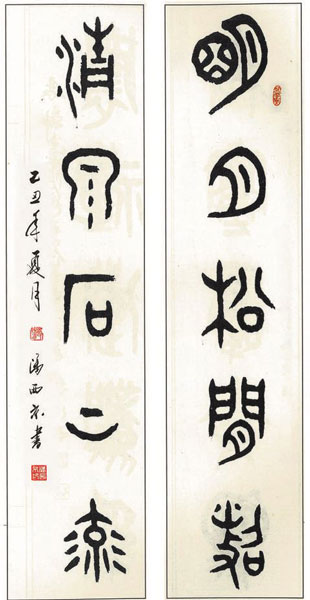 明月松間照
清泉石上流
己丑年夏月
西 書